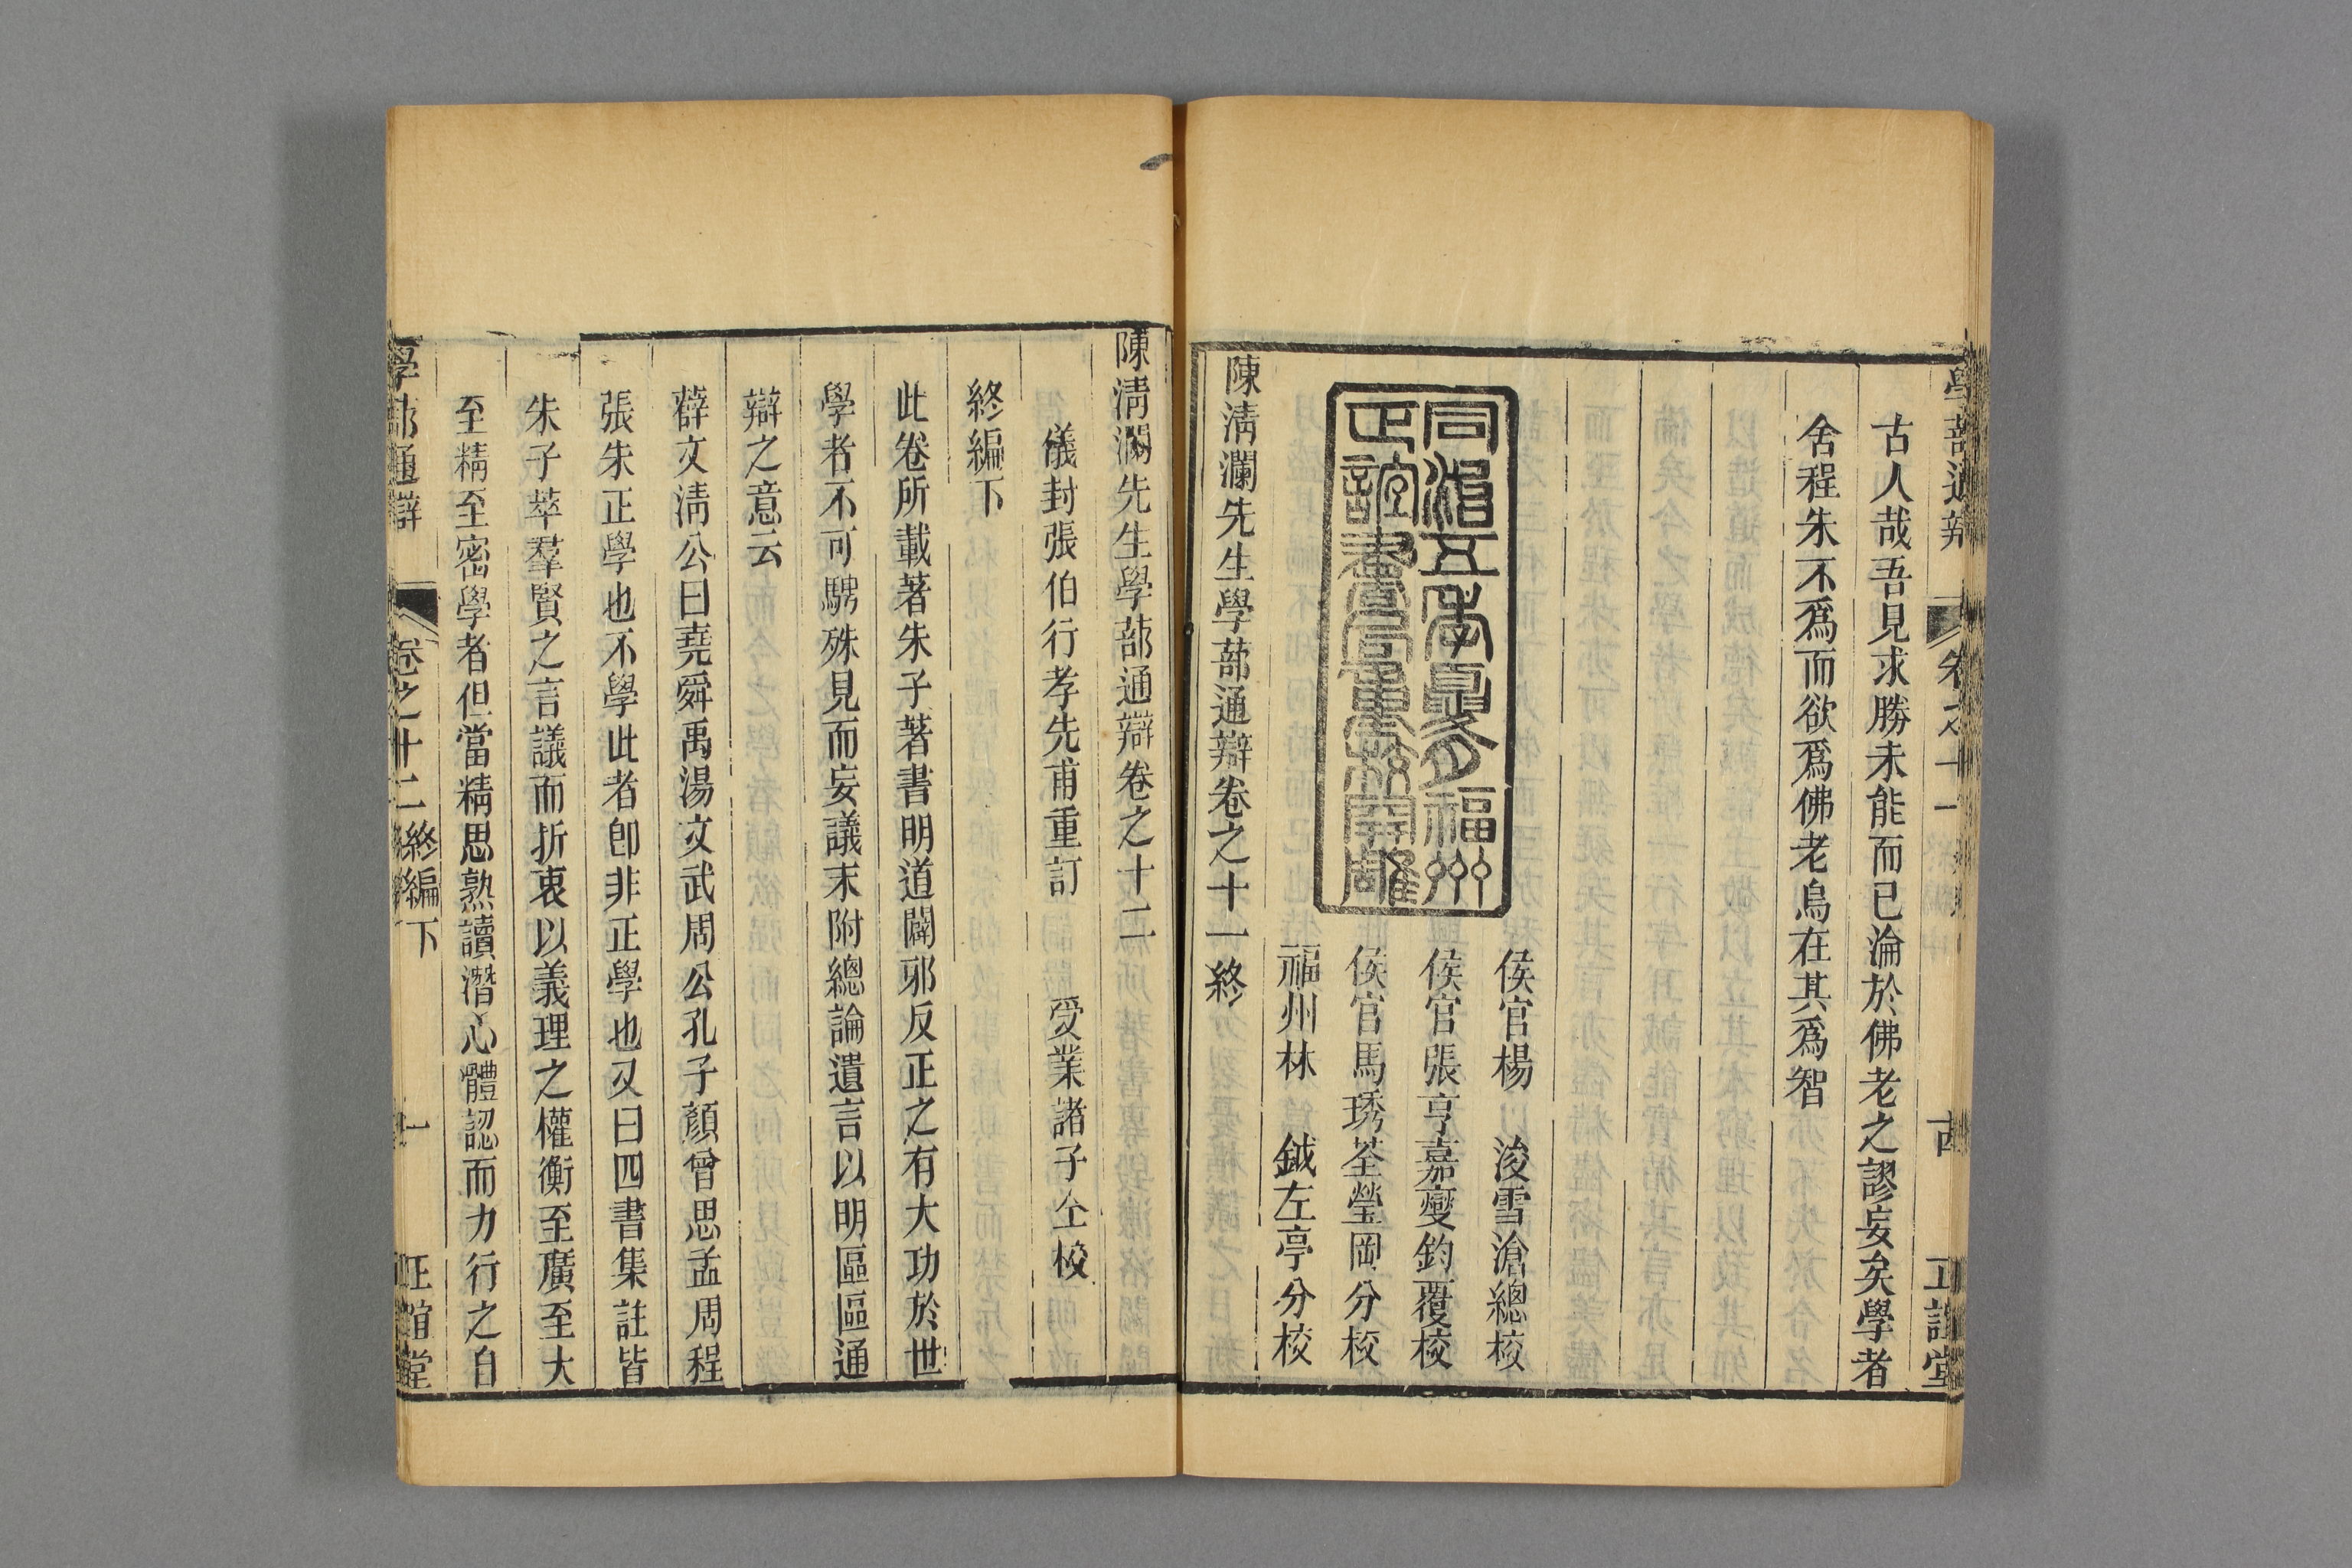 學蔀通辯 卷之十一 正誼堂
古人哉吾見求勝未能而已淪於佛老之謬妄矣學者
舍程朱不爲而欲爲佛老烏在其爲智
侯官楊 浚雪滄總校
侯官張亨嘉燮鈞覆校
侯官馬琇荃瑩岡分校
福州林 鉞左亭分校
同治五年夏月福州
正誼書局重校開雕
陳淸瀾先生學蔀通辯卷之十一終
陳淸瀾先生學蔀通辯卷之十二
儀封張伯行孝先甫重訂 受業諸子仝校
終編下
此卷所載著朱子著書明道闢邪反正之有大功於世
學者不可騁殊見而妄議末附總論遺言以明區區通
辯之意云
薛文淸公曰堯舜禹湯文武周公孔子顏曾思孟周程
張朱正學也不學此者卽非正學也又曰四書集註皆
朱子萃羣賢之言議而折衷以義理之權衡至廣至大
至精至密學者但當精思熟讀潛心體認而力行之自
學蔀通辯 卷之十二終編下 一 正誼堂